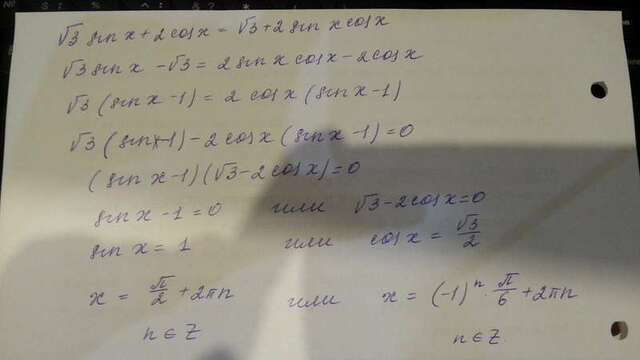 √3 sin x + 2 cos x = √3 + 2 sin x cos x
√3 sin x - √3 = 2 sin x cos x - 2 cos x
√3 (sin x - 1) = 2 cos x (sin x - 1)
√3 (sin x - 1) - 2 cos x (sin x - 1) = 0
(sin x - 1)(√3 - 2 cos x) = 0
sin x - 1 = 0 или √3 - 2 cos x = 0
sin x = 1 или cos x = √3/2
x = π/2 + 2πn или x = (-1)^n · π/6 + 2πn
n ∈ Z n ∈ Z.